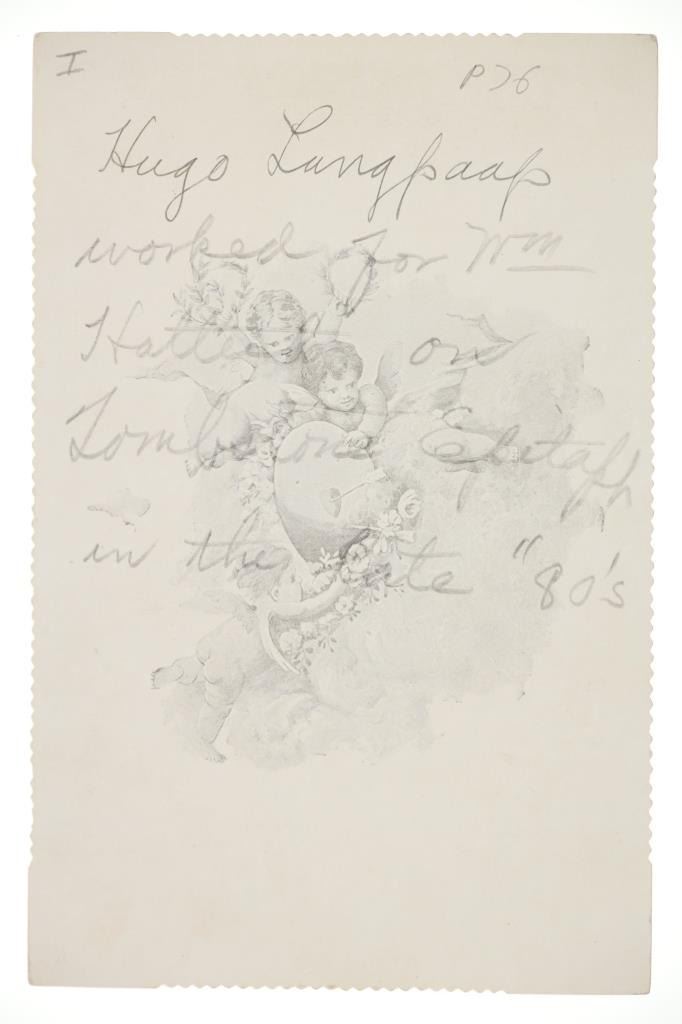 I P76
Hugo Langpaap
worked for Wm
on
Tombstone Epitaph
in the late "80's